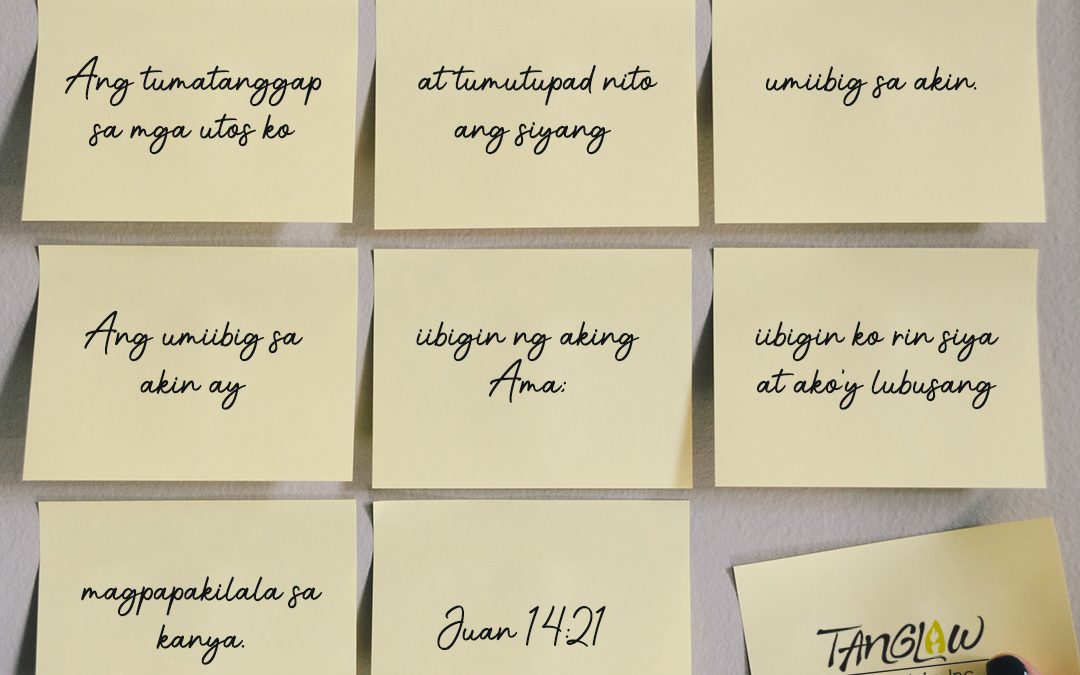 Ang tumatanggap
sa mga utos ko
at tumutupad nito
ang siyang
umiibig sa akin.
Ang umiibig sa
akin ay
iibigin ng aking
Ama:
iibigin ko rin siya
at ako'y lubusang
magpapakilala sa
kanya.
Juan 14:21
TANGLAW